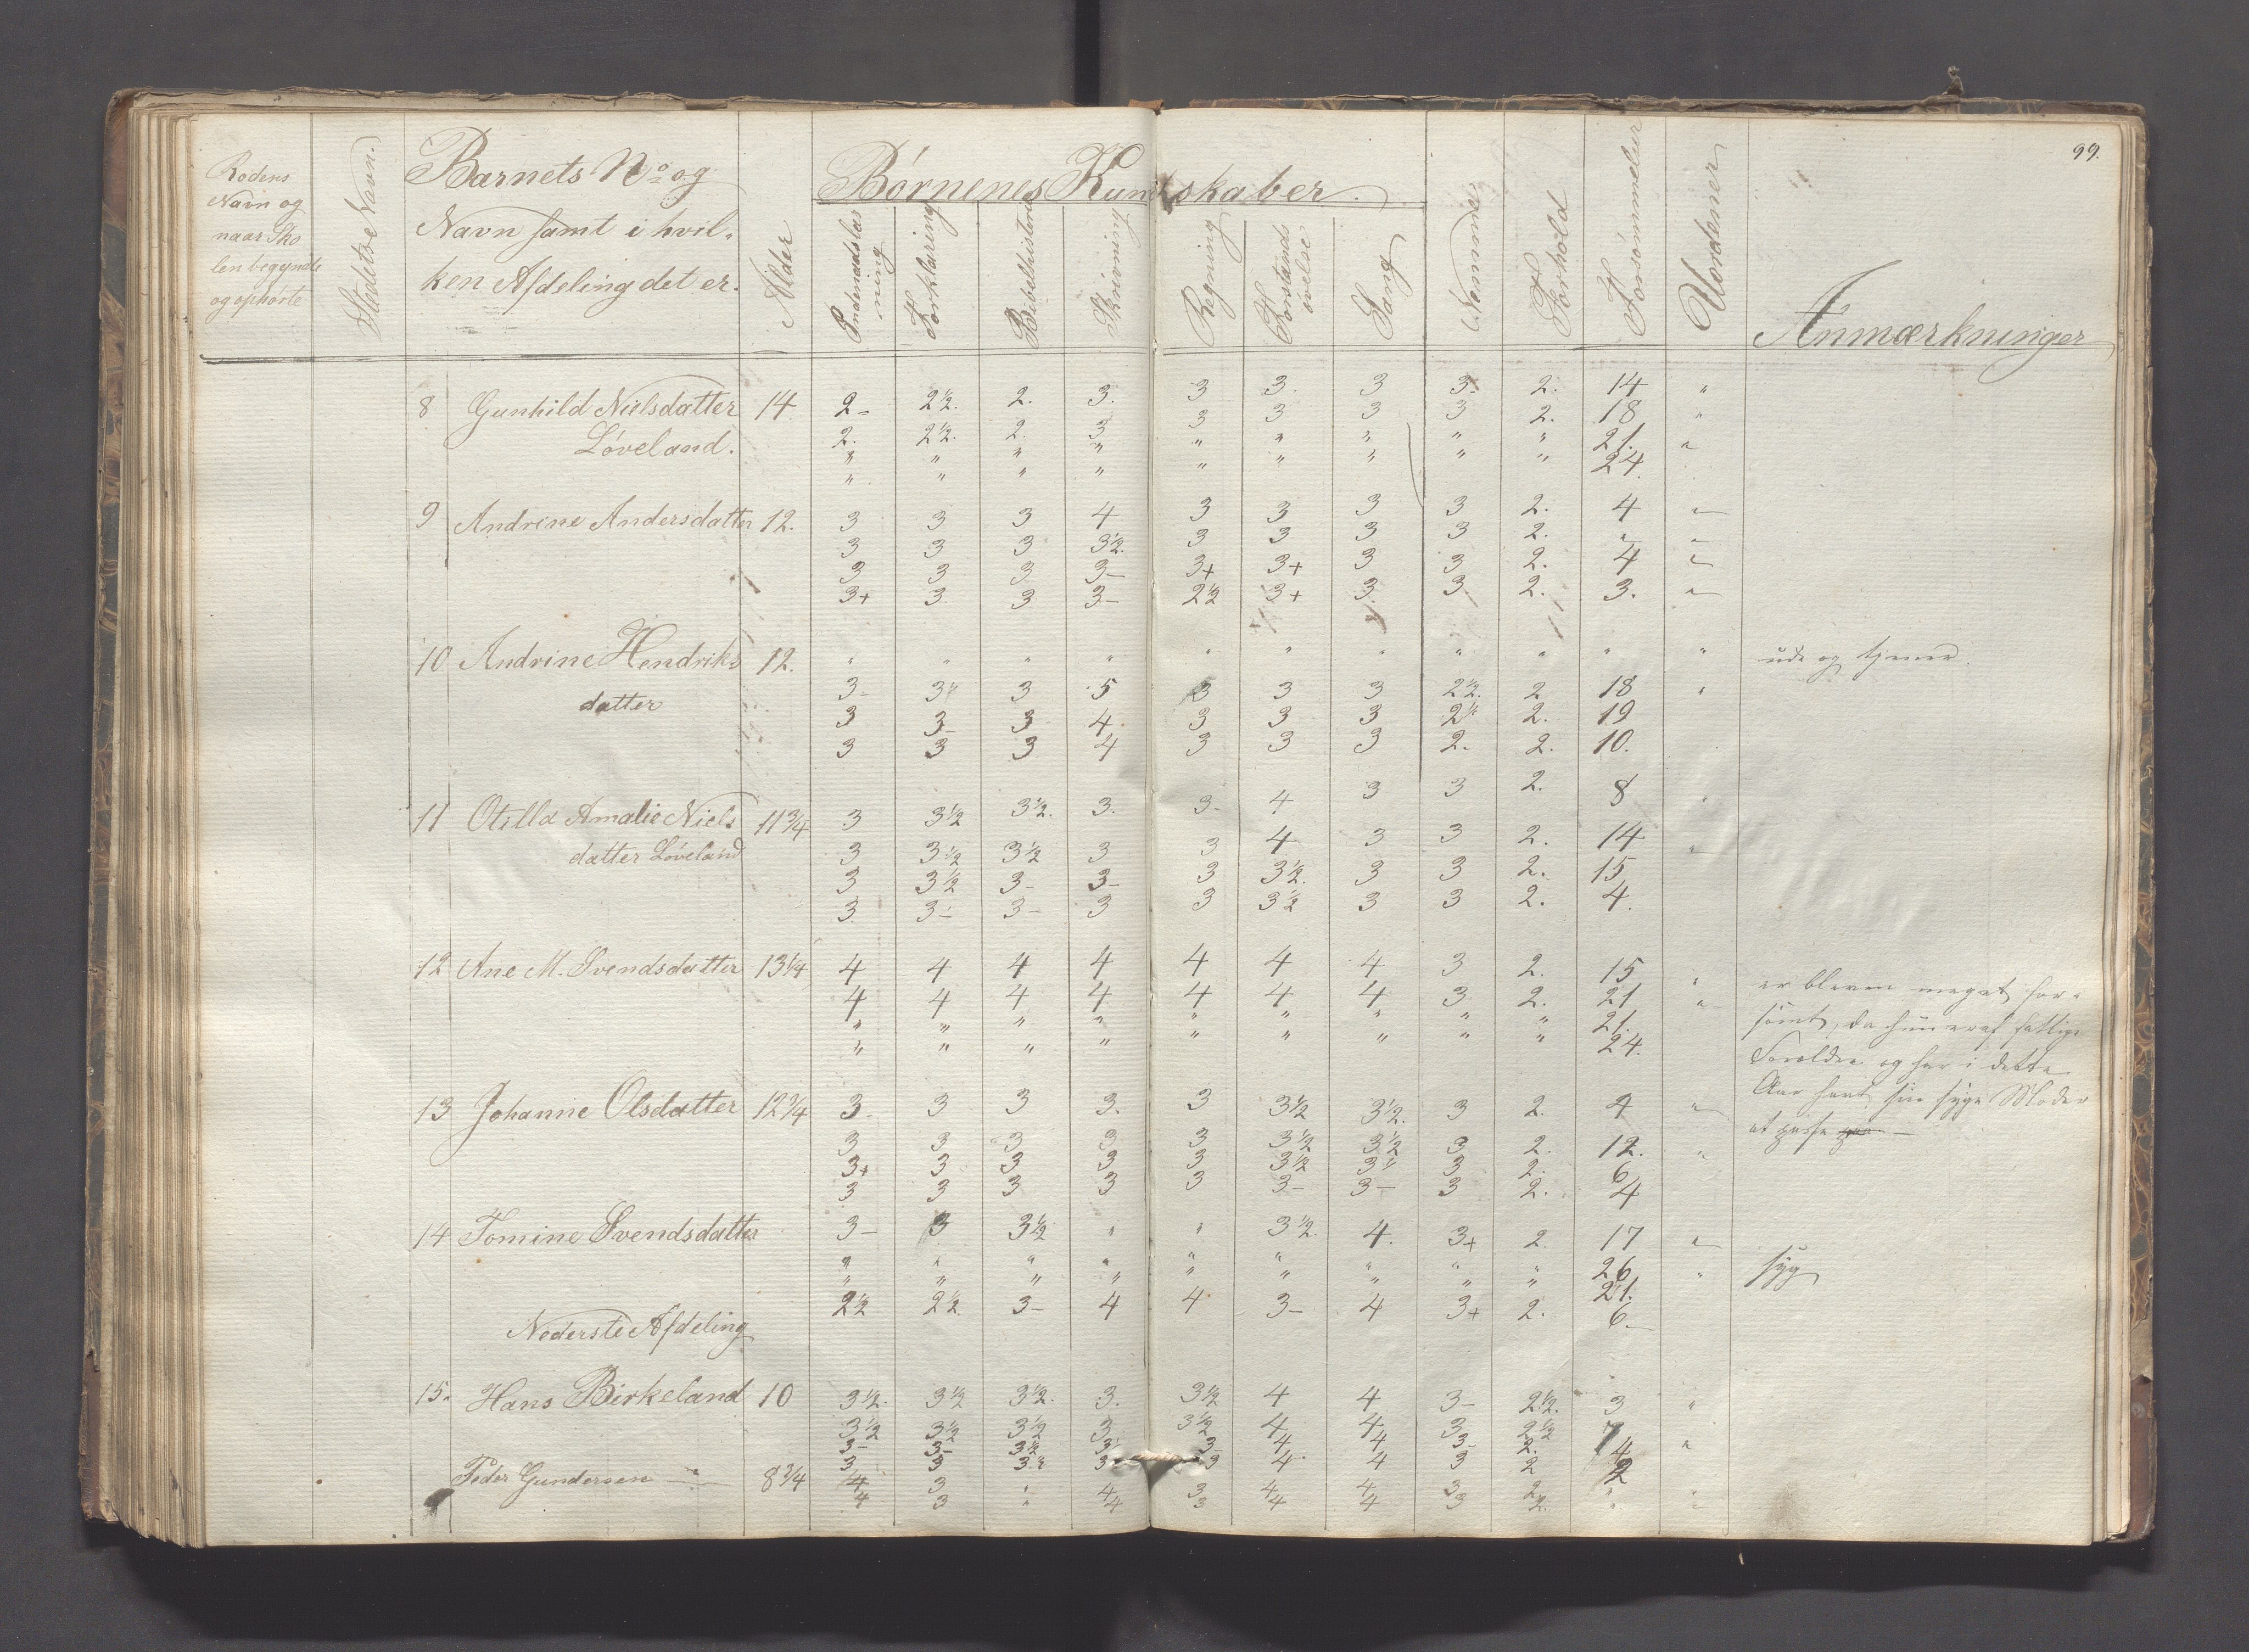 99.
Rodens
Navn og
naar Sko
len begyndte
og ophørte
Stedets Navn.
Barnets No og
Navn samt i hvil-
ken Afdeling det er.
Alder
Børnenes Kundskaber.
Indenadslæs
ning
Forklaring
Bibelhistorie
Skrivning
Regning
Forstands
øvelse
Sang
Nemme
Forhold
Forsømmelser
Uordener
Anmærkninger
8 Gunhild Nielsdatter 14 2- 2½. 2. 3. 3 3. 3 3. 2. 14 "
Løveland. 2. 2½. 2. 3 3 3 3 3 2. 18 "
" " " " " " " " " 21. "
" " " " " " " " " 24.
9 Andrine Andersdatter 12. 3 3 3 4 3 3 3 3 2. 4 "
3 3 3 3½. 3 3 3 3 2. " "
3 3 3 3- 3+ 3+ 3 3 2. 4 "
3+ 3. 3 3- 2½ 3+ 3. 3. 2. 3. "
10 Andrine Hendriks 12. " " " " " " " " " " " ude og tjener.
datter 3- 3½ 3 5 3 3 3 2½. 2 18 "
3 3- 3 4. 3 3 3 2½ 2. 19
3 3 3 4 3 3 3 2. 2. 10.
11 Otilla Amalie Niels 11¾ 3 3½ 3½. 3. 3- 4 3 3 2. 8
datter Løveland 3 3½ 3½ 3 3 4. 3 3 2. 14 "
3 3½ 3- 3- 3 3½. 3 3 2. 15
3. 3- 3- 3 3 3½ 3 3 2. 4.
12 Ane M. Svendsdatter 13¼ 4 4 4 4 4 4 4 3 2. 15 " er bleven meget for-
4 4 4 4 4 4 4 3. 2. 21 " sømt, da hun er af fattige
" " " " " " " " " 21. Forældre og har i dette
" " " " " " " " " 24. Aar havt sin syge Moder
at passe
13 Johanne Olsdatter 12¾ 3- 3 3 3. 3 3½ 3½. 3 2. 4 "
3 3 3 3 3 3½ 3½ 3 2. 12. "
3+ 3 3 3 3 3½ 3½ 3 2. 6
3 3 3 3 3 3- 3- 3 2. 4
14 Tomine Svendsdatter 3- 3 3½ " " 3½. 4. 3+ 2. 17 "
" " " " " " " " " 26 " syg
" " " " " " " " " 21.
2½ 2½ 3- 4 4 3- 4 3+ 2. 6-
Nederste Afdeling
15. Hans Birkeland 10 3½. 3½ 3½. 3. 3½ 4 4 3- 2½. 3 "
3½ 3½ 3½ 3 3½ 4 4 3 2½ 7 "
3- 3- 3½ 3 3- 4 4 3- 2. 4
3 3 3½ 3 3 4. 4 3 2 2
Peder Gundersen 8¾ 4 3 " 4 3 4 4 3 2 " "
4 3 " 4 3 4 4 3 2. " "